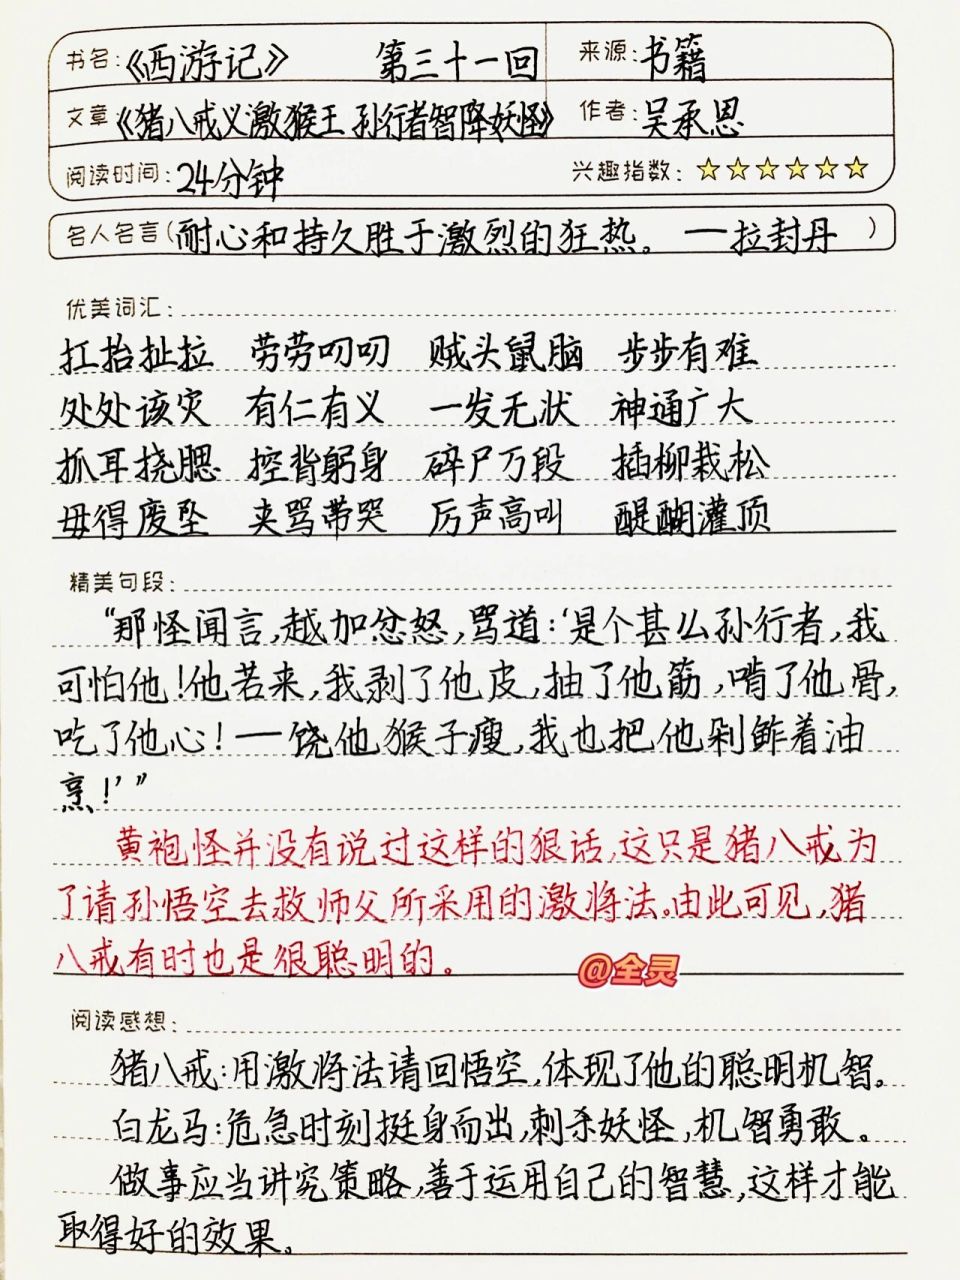 书名:《西游记》 第三十一回 来源:书籍
文章《猪八戒义激猴王 孙行者智降妖怪》 作者:吴承恩
阅读时间:24分钟 兴趣指数:☆☆☆☆☆☆
名人名言(耐心和持久胜于激烈的狂热。 ——拉封丹 )
优美词汇:
扛抬扯拉 劳劳叨叨 贼头鼠脑 步步有难
处处该灾 有仁有义 一发无状 神通广大
抓耳挠腮 控背躬身 碎尸万段 插柳栽松
毋得废坠 夹骂带哭 厉声高叫 醍醐灌顶
精美句段:
“那怪闻言,越加忿怒,骂道:‘是个甚么孙行者,我
可怕他!他若来,我剥了他皮,抽了他筋,啃了他骨,
吃了他心!——饶他猴子瘦,我也把他剁鲊着油
烹!’”
黄袍怪并没有说过这样的狠话,这只是猪八戒为
了请孙悟空去救师父所采用的激将法。由此可见,猪
八戒有时也是很聪明的。
@全灵
阅读感想:
猪八戒:用激将法请回悟空,体现了他的聪明机智。
白龙马:危急时刻挺身而出,刺杀妖怪,机智勇敢。
做事应当讲究策略,善于运用自己的智慧,这样才能
取得好的效果。